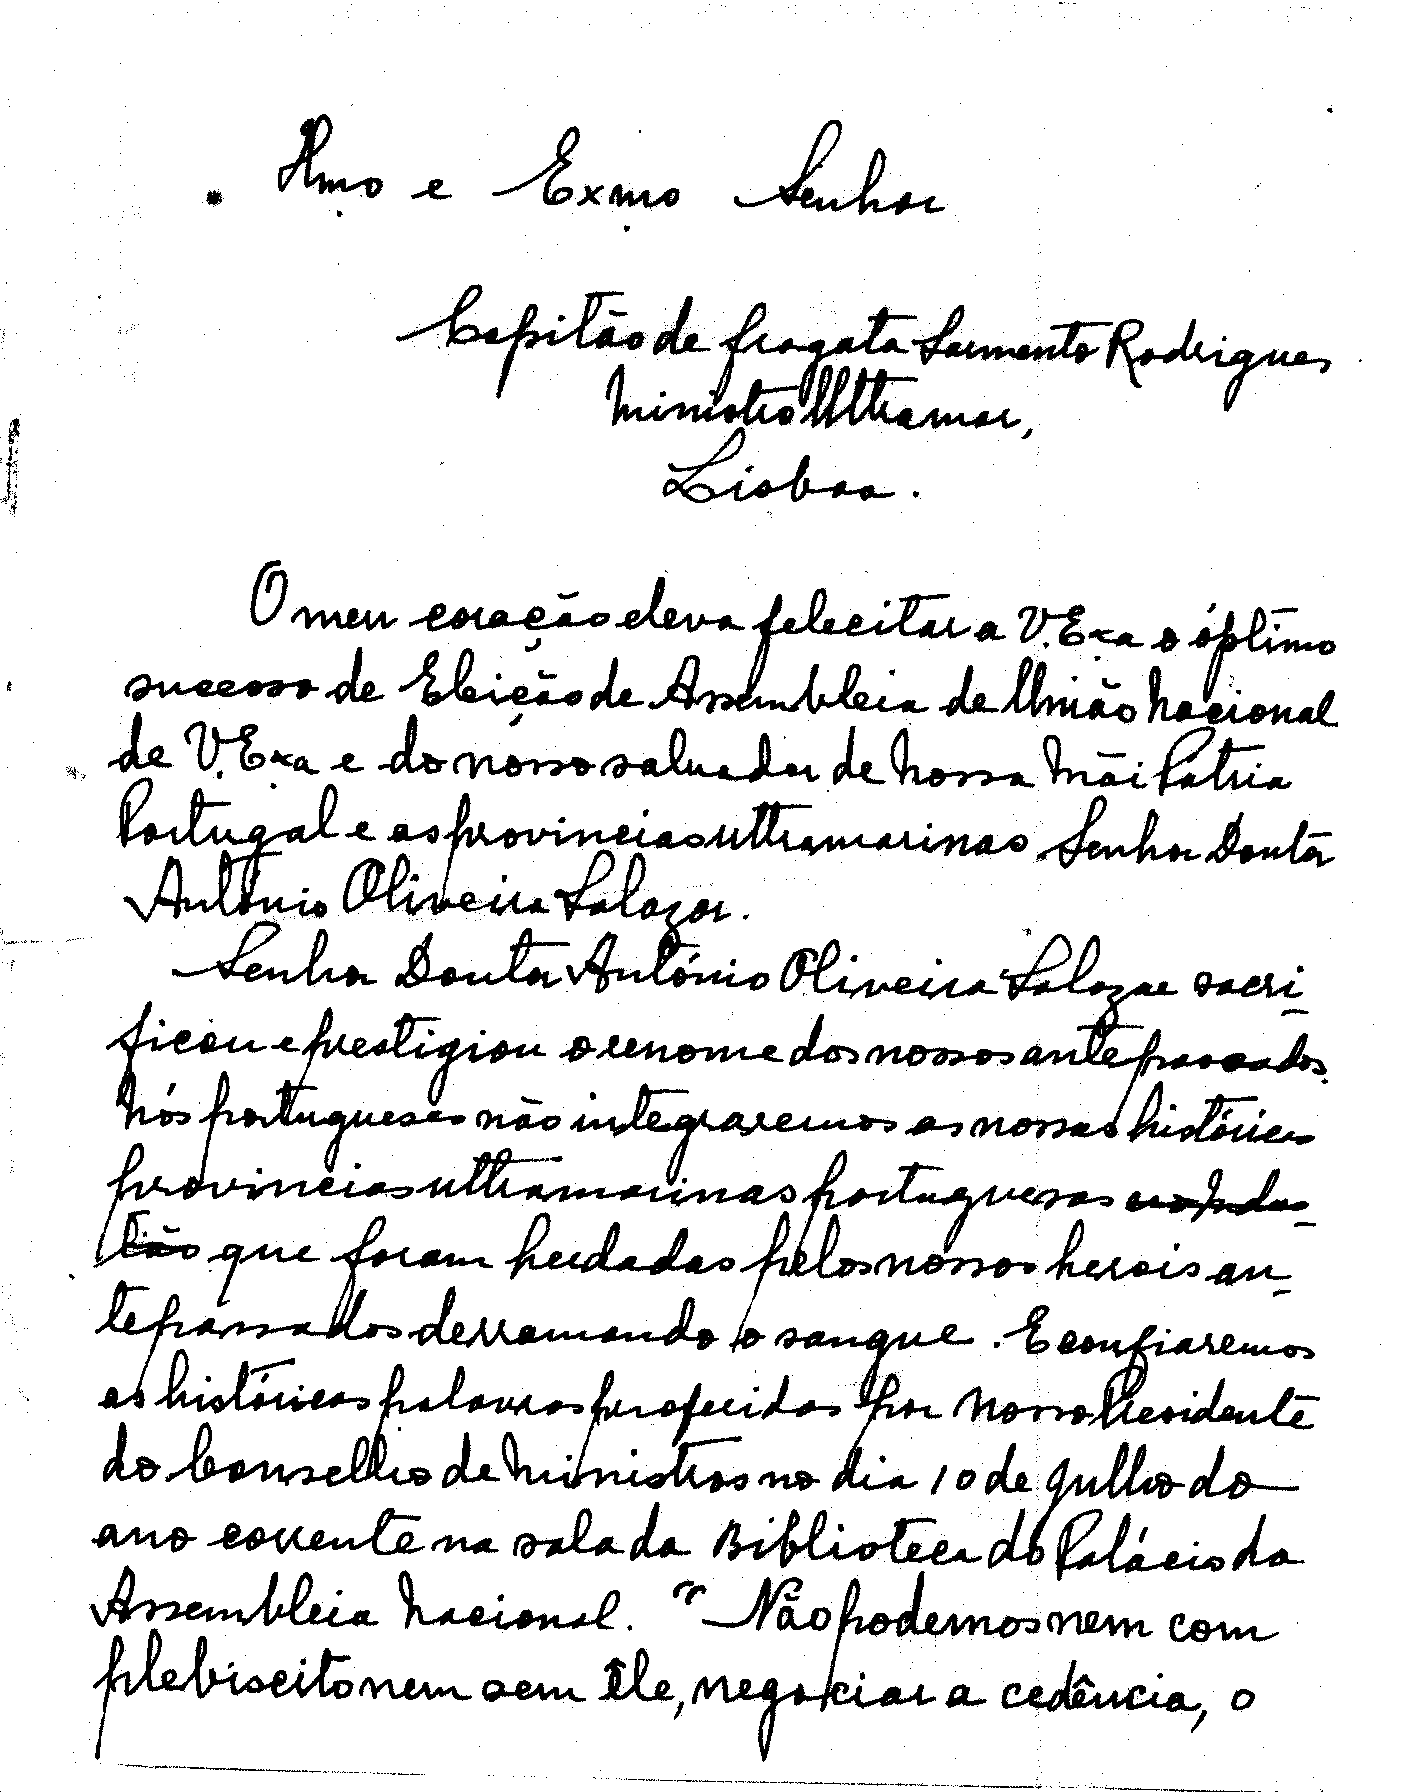 Ilmo e Exmo Senhor
Capitão de fragata Sarmento Rodrigues
Ministro Ultramar,
Lisboa.
O meu coração eleva felecitar a V.Exa o óptimo
sucesso de Eleição de Assembleia de União Nacional
de V.Exa e do nosso salvador de Nossa Mãi Patria
Portugal e as provincias ultramarinas Senhor Doutor
António Oliveira Salazar.
Senhor Doutor António Oliveira Salazar sacri-
ficou e prestigiou o renome dos nossos antepassados.
Nós portugueses não integraremos as nossas históricas
provincias ultramarinas portuguesas
que foram herdadas pelos nossos herois an-
tepassados derramando o sangue. E confiaremos
as históricas palavras proferidas por Nosso Presidente
do Conselho de Ministros no dia 10 de Julho do
ano corrente na sala da Biblioteca do Palácio da
Assembleia Nacional. "Não podemos nem com
plebiscito nem sem êle, negociar a cedência, o